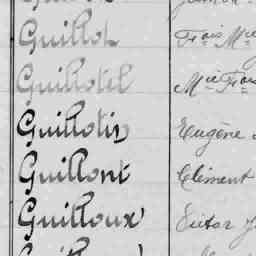 Guillot Frois Mie
Guillotel Mie Frois
Guillotin Eugène
Guillont Clément
Guilloux Victor